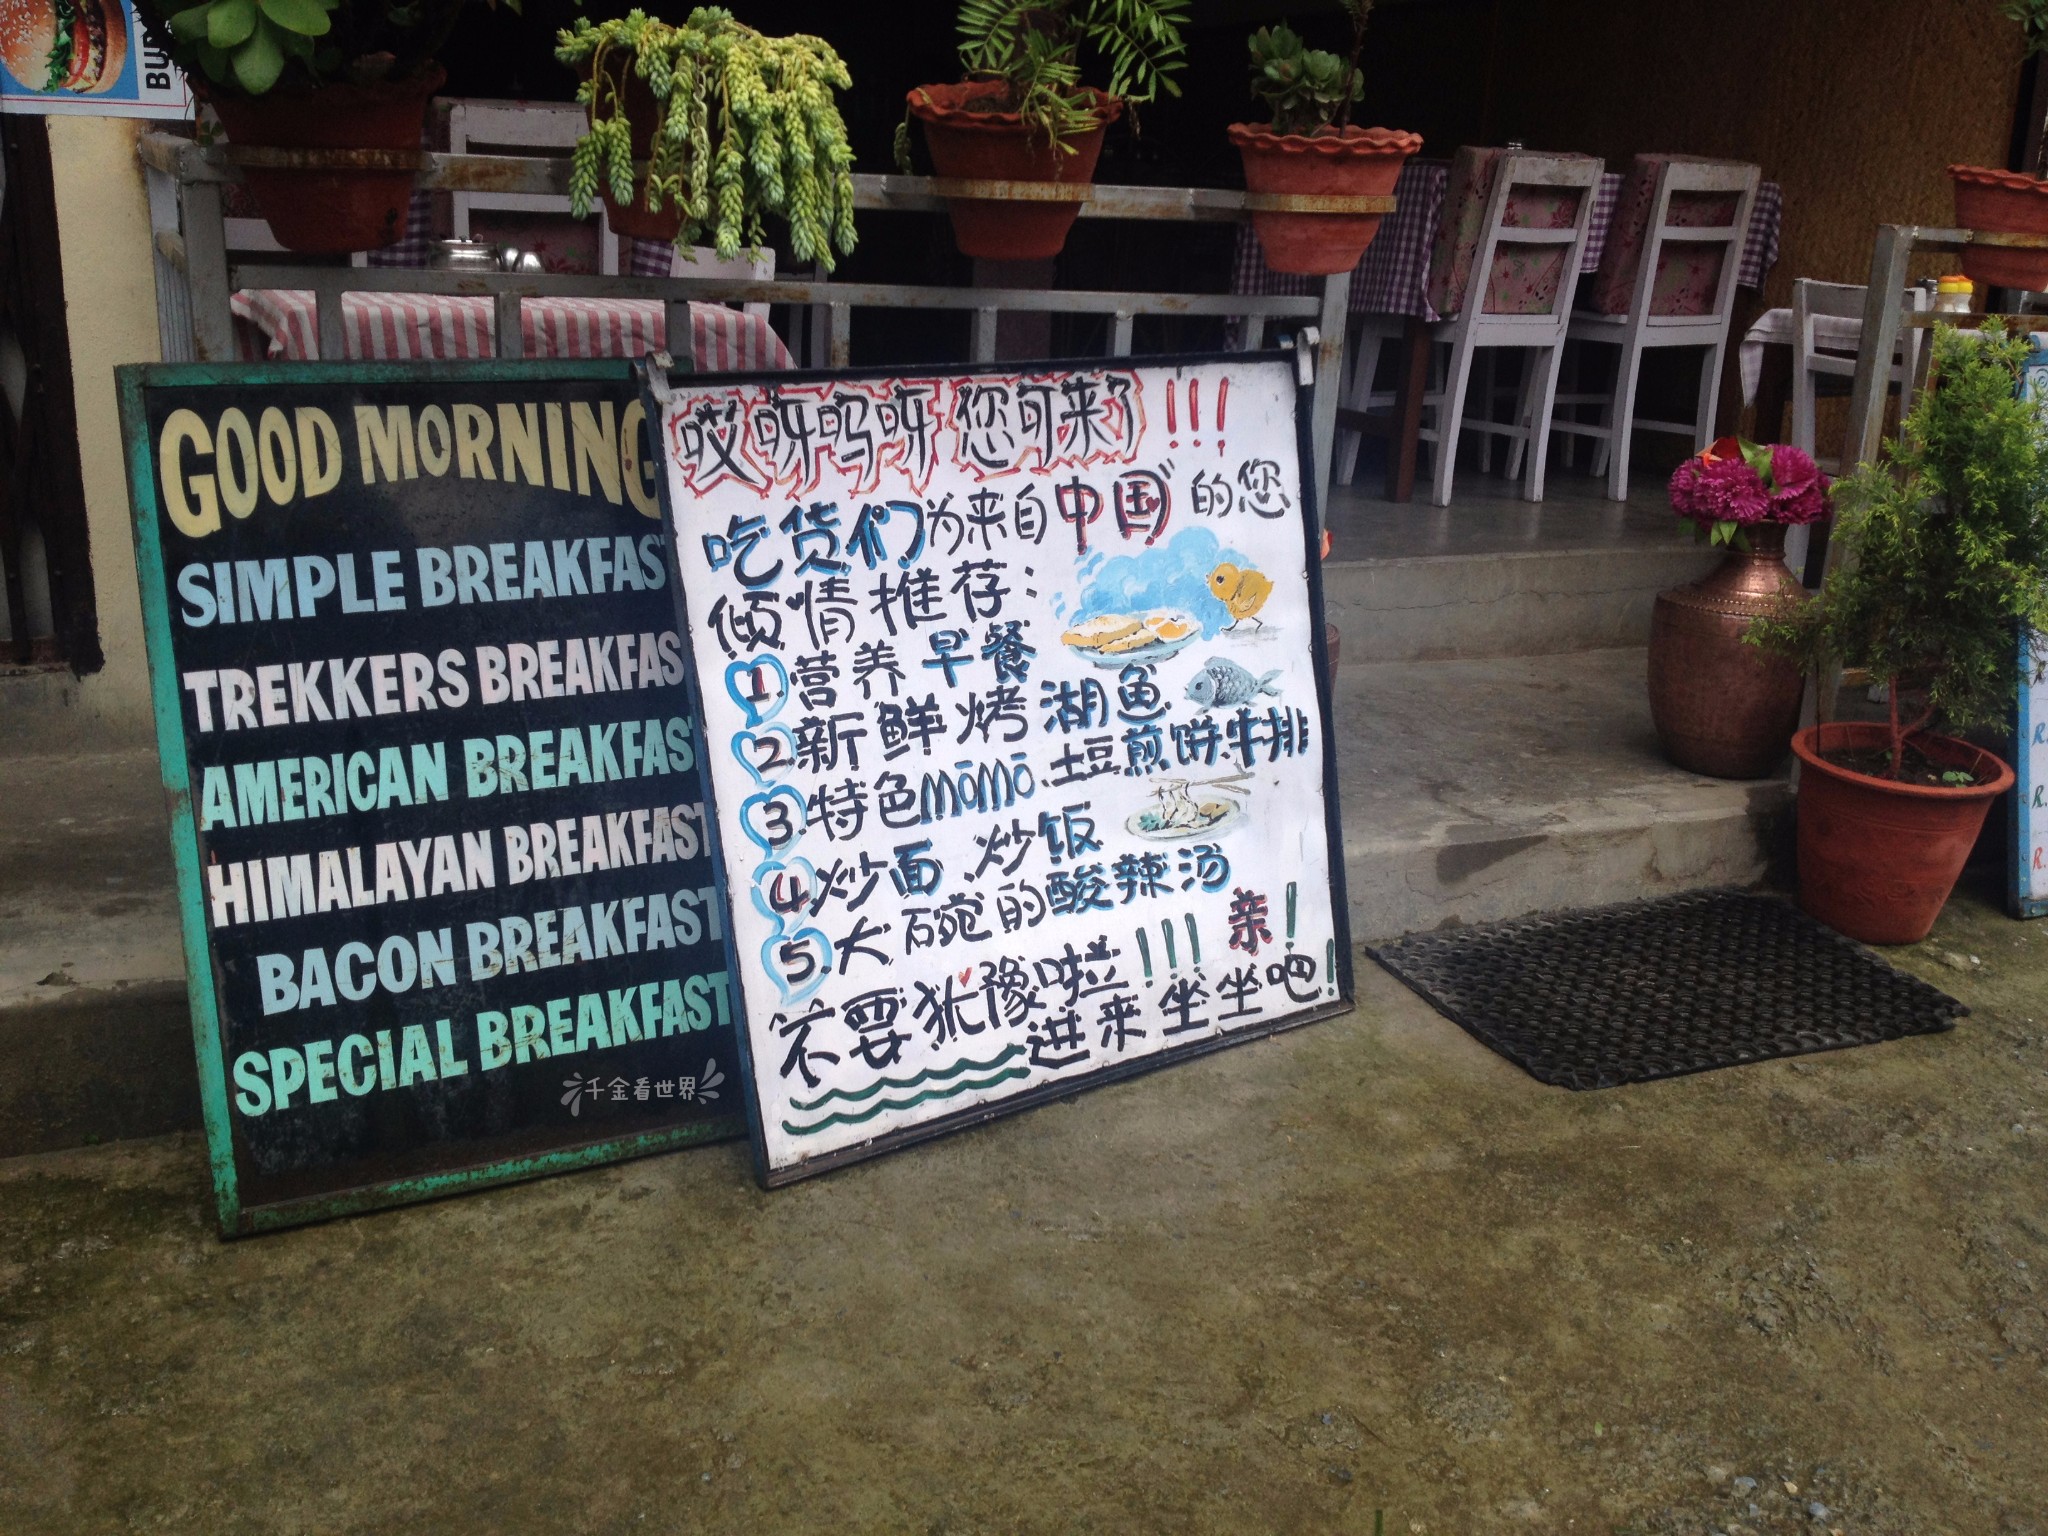 BU
GOOD MORNING
SIMPLE BREAKFAST
TREKKERS BREAKFAS
AMERICAN BREAKFAST
HIMALAYAN BREAKFAST
BACON BREAKFAST
SPECIAL BREAKFAST
千金看世界
哎呀呜呀您可来了!!!
吃货们为来自中国的您
倾情推荐:
1.营养早餐
2.新鲜烤湖鱼
3.特色mōmō.土豆煎饼.牛排
4.炒面.炒饭
5.大碗的酸辣汤
不要犹豫啦!!!亲!
进来坐坐吧!
R.
R.
R.